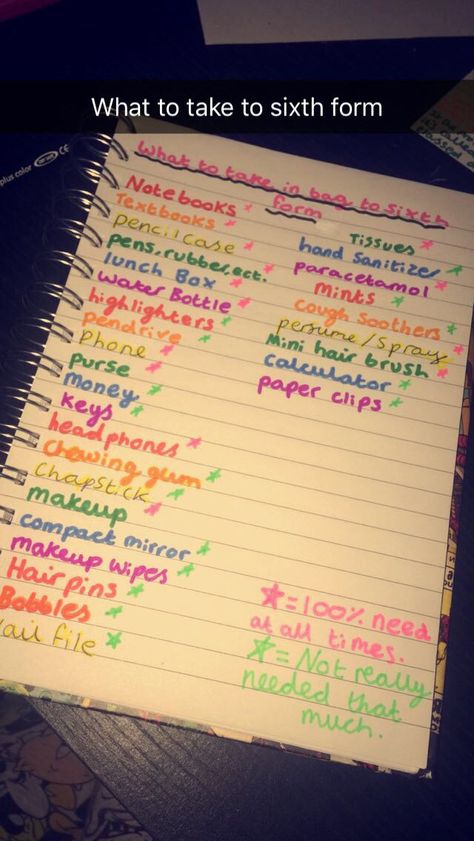 What to take to sixth form
plus color
CE
What to take in bag to sixth
form
Notebooks *
Textbooks *
pencil case *
pens, rubber, ect.
lunch Box *
Water Bottle *
highlighters *
pendrive *
Phone *
purse *
money *
keys *
headphones *
Chewing gum *
Chapstick *
makeup *
compact mirror *
makeup wipes *
Hair pins *
Bobbles *
ail file *
Tissues *
hand Sanitizer *
paracetamol *
mints *
Cough Soothers *
persume/Sprays
Mini hair brush *
calculator *
paper clips *
* = 100% need
at all times.
* = Not really
needed that
much.